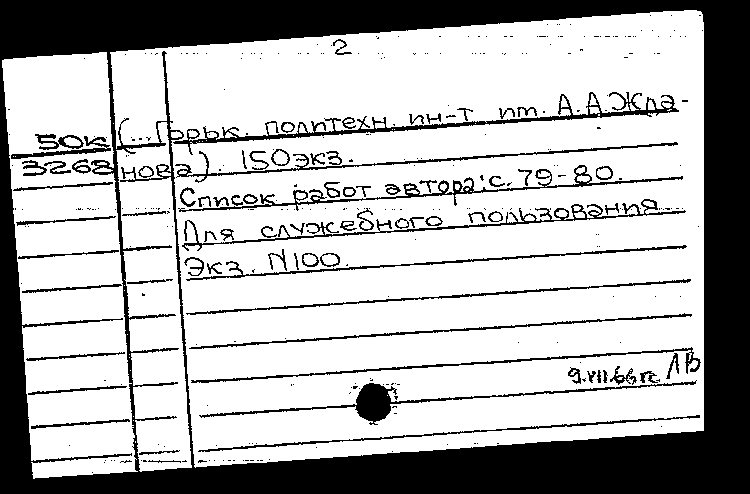 2
50к (...Горьк. политехн. ин-т им. А.А.Жда-
3268 нова). 150экз.
Список работ автора: с. 79-80.
Для служебного пользования
Экз. N100.
9.VII.66г. ЛВ